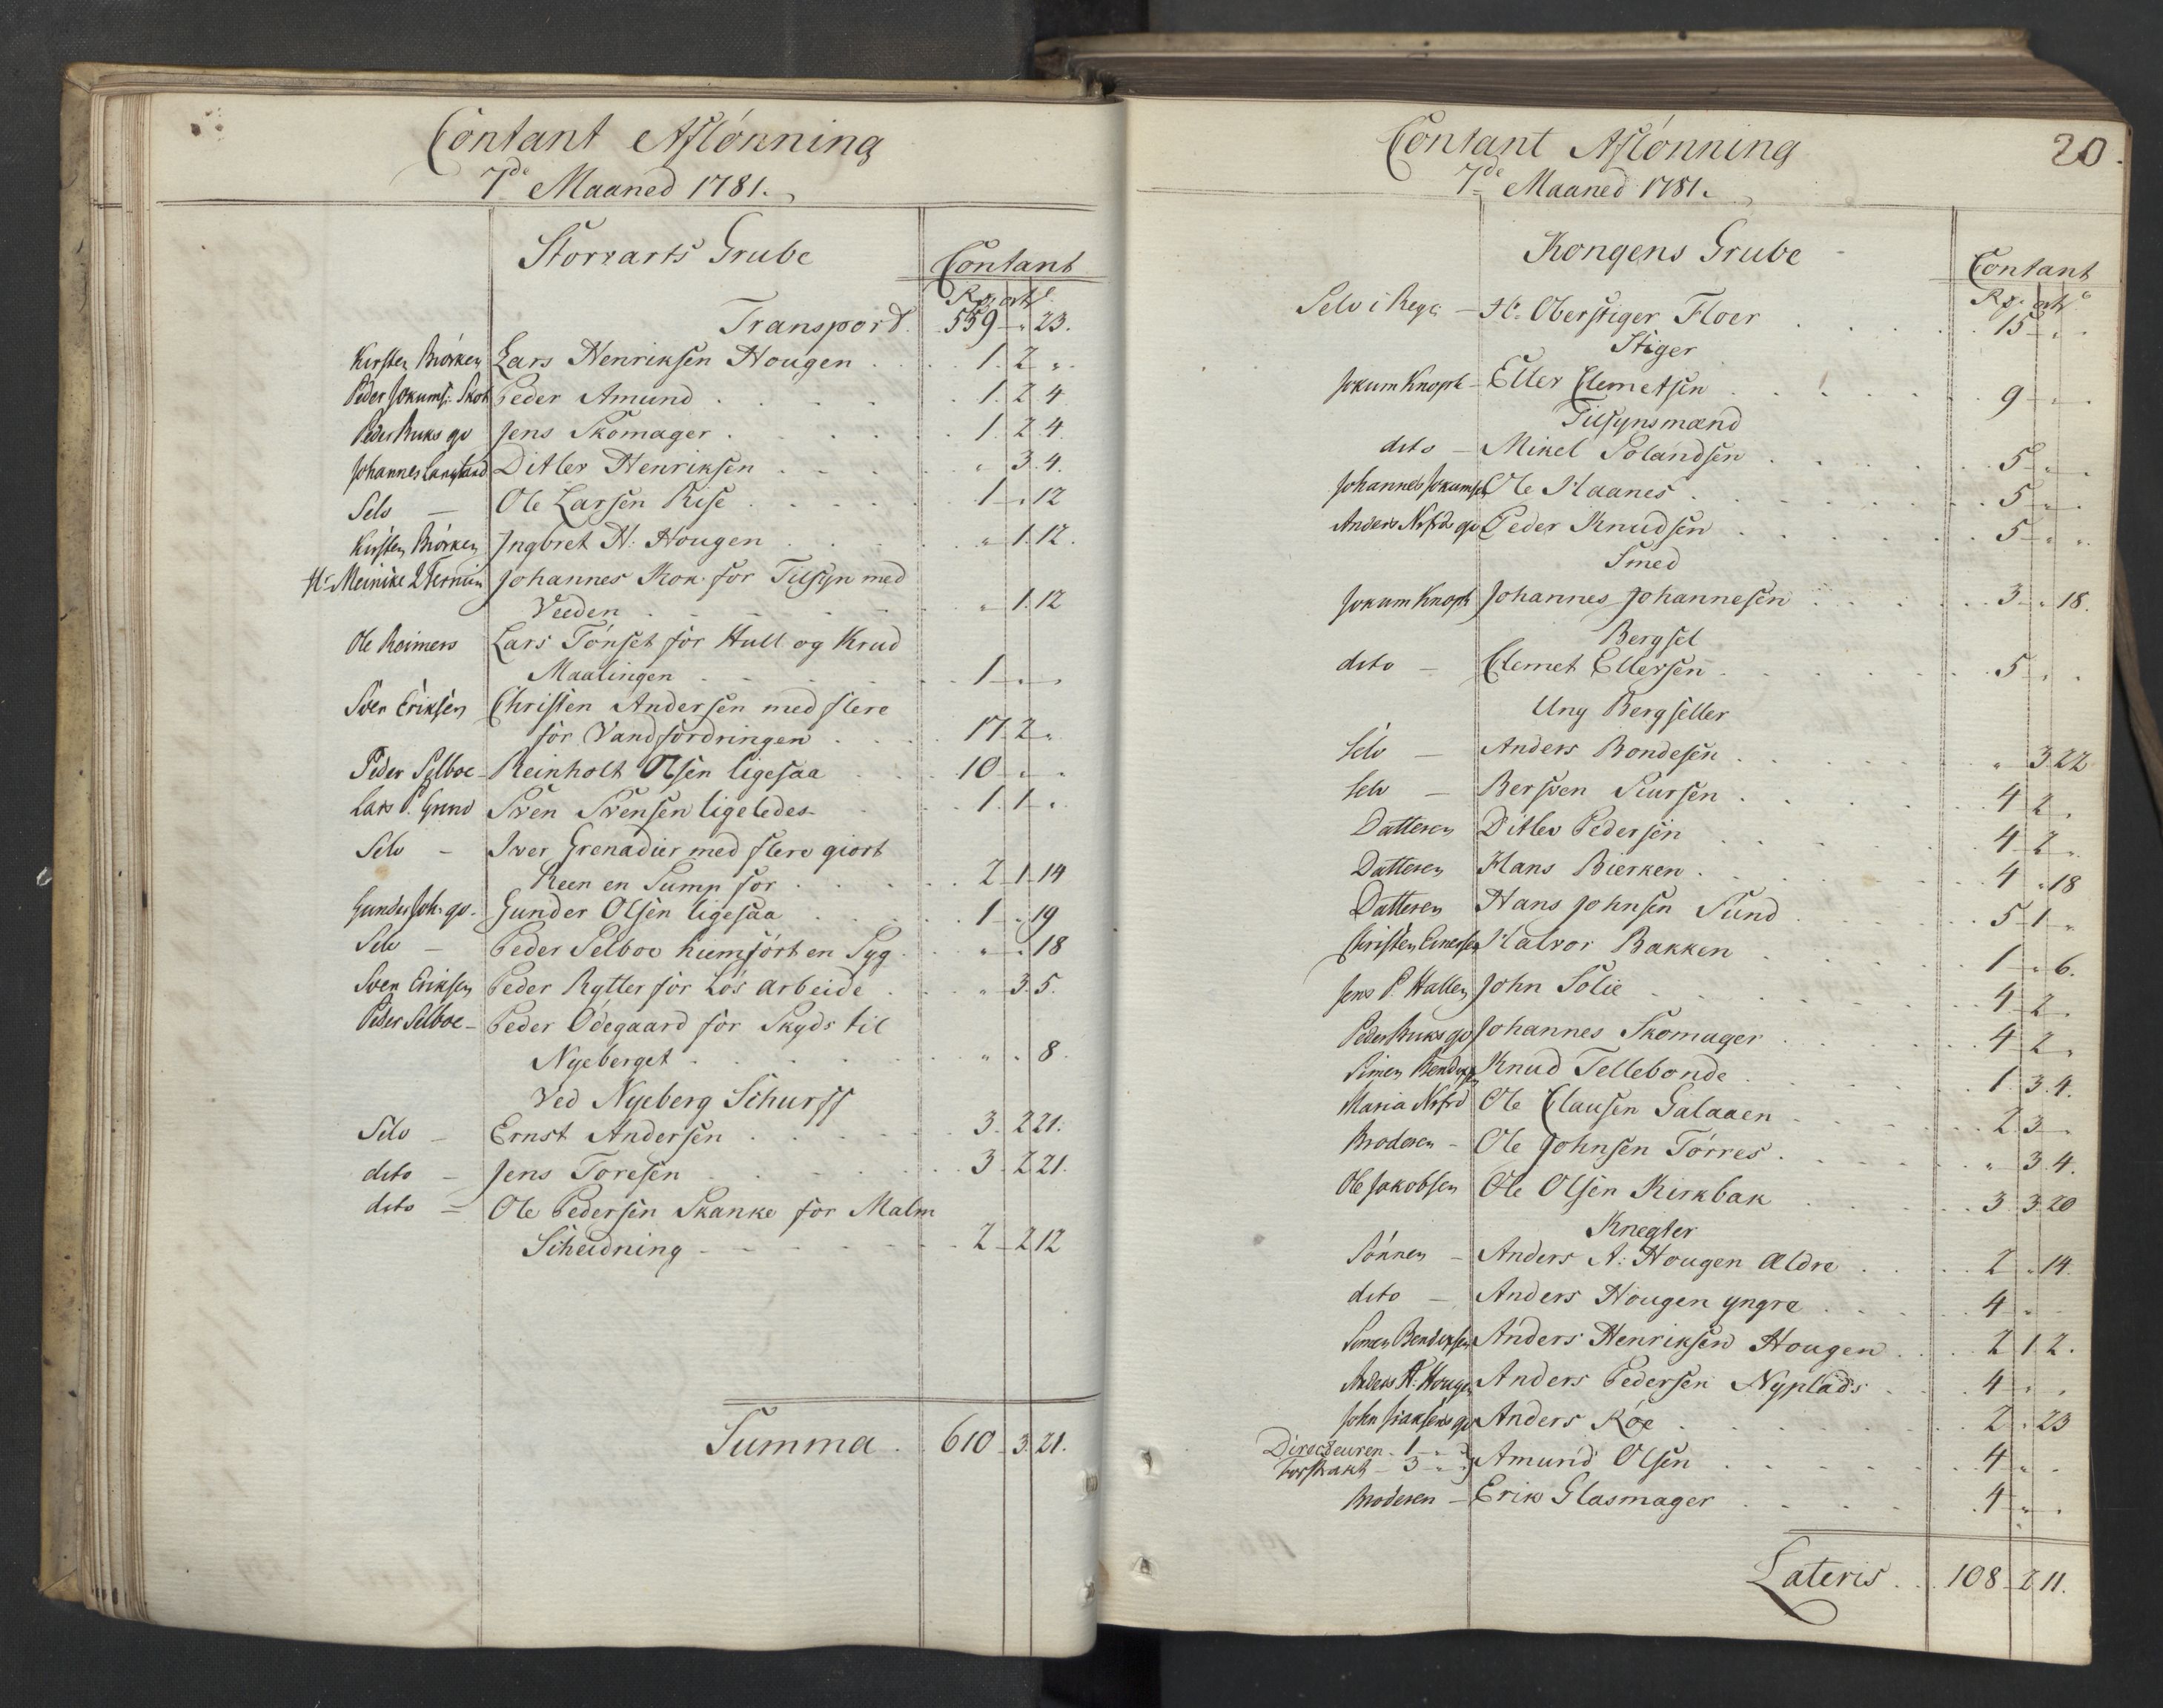 Contant Aflönning
7de Maaned 1781.
Storvarts Grube
Contant
Rdr. ort s.
Transport. 559 - " 23.
Kirsten Biörken Lars Henriksen Hougen . . . 1. 2 ".
Peder Jokums: Skot Peder Amund . . . 1. 2 4.
Peder Buks gv Jens Skomager . . . 1. 2. 4.
Johannes Langland Ditlev Henriksen . . . " 3. 4.
Selv — Ole Larsen Rise . . . 1 - " 12
Kirsten Biörken Ingbret H: Hougen . . . " 1. 12.
Hr. Meinike 2 Termin Johannes Kok for Tilsyn med
Veeden . . . " 1. 12
Ole Reimers Lars Tönset for Hull og Krud
Maalingen . . . 1 - " - "
Sven Eriksen Christen Andersen med flere
for Vandfordringen . . . 17 2 "
Peder Selboe - Reinholt Olsen ligesaa . . . 10 " "
Lars P. Grind Sven Svensen ligeledes . 1. 1 ".
Selv — Iver Grenadier med flere giort
Reen en Sump for . . . 2 - 1 - 14
Gunder Joh: gv. Gunder Olsen ligesaa . . . 1 " 19
Selv — Peder Selboe hiemfört en Syg . . " - " 18
Sven Eriksen Peder Rytter for Lös arbeide . . . " 3. 5.
Peder Selboe - Peder Ödegaard for Skyds til
Nyeberget . . . " " 8.
Ved Nyeberg Schurff
Selv — Ernst Andersen . . . 3. 2 21.
dito — Jens Toresen . . . 3 - 2 21.
dito — Ole Pedersen Skanke for Malm
Scheidning - - - 2 - 2 12
Summa . 610 - 3. 21.
Contant Aflönning
7de Maaned 1781.
20.
Kongens Grube
Contant
Rdr. ort s
Selv i Regn: — Hr. Oberstiger Floer . . . 15 - " .
Stiger
Jokum Knoph — Eller Clemetsen . . . 9 - " - .
Tilsynsmænd
dito — Mikel Polandsen . . . 5 - " - .
Johannes Jokumsen Ole Haanes . . . 5 - " .
Anders Nrfrd gv Peder Knudsen . . . 5 - " ".
Smed
Jokum Knoph Johannes Johannesen . . . 3 - " 18.
Bergsel
dito — Clemet Ellersen . . . 5 - " .
Ung Bergseller
Selv — Anders Bondesen . . . " 3 22
Selv — Bersven Siursen . . . 4 2 .
Datteren Ditlev Pedersen . . . 4 - 2 - ".
Datteren Hans Bierken . . . 4 " 18
Datteren Hans Johnsen Sund . . . 5 - 1 - "
Christen Einersen Halvor Bakken . . . 1 - " 6.
Jens P. Hallen John Solie . . . 4 - 2 - .
Peder Buks gv Johannes Skomager . . . 4 2 - "
Simen Bendixsen Knud Tellebonde . . . 1. 3. 4.
Maria Nrfrd Ole Clausen Galaaen . . . 2. 3 - .
Broderen — Ole Johnsen Törres . . . " 3. 4.
Ole Jakobsen Ole Olsen Kirkbak . . . 3 3. 20
Knegter
Sönnen — Anders A: Hougen ældre . . . 2 " 14
dito — Anders Hougen yngre . . . 4 - "
Simen Bendixsen Anders Henriksen Hougen . . . 2 1. 2.
Anders H: Hougen Anders Pedersen Nyplads . . . 4 " .
John Isaksens gv Anders Röe . . . 2 " 23
Directeuren . 1 - " -
Forstrakt - 3 - " . } Amund Olsen . . . 4 - " .
Broderen — Erik Glasmager . . . 4 - " .
Lateris . . 108 - 2 11.